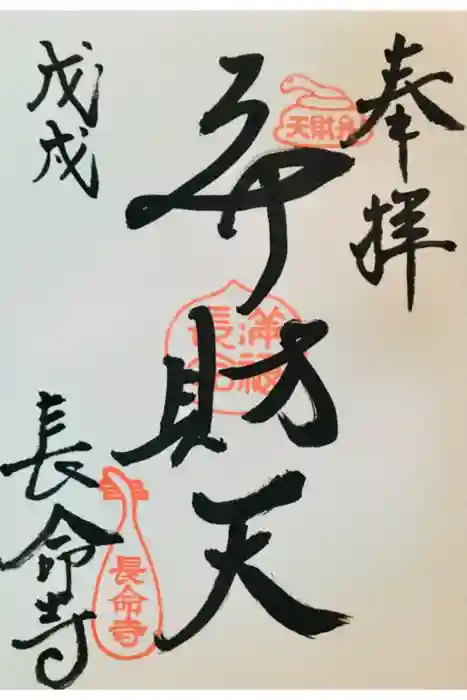 奉拝
弁財天
戊戌
長命寺
弁財天
満福
長命
長命寺